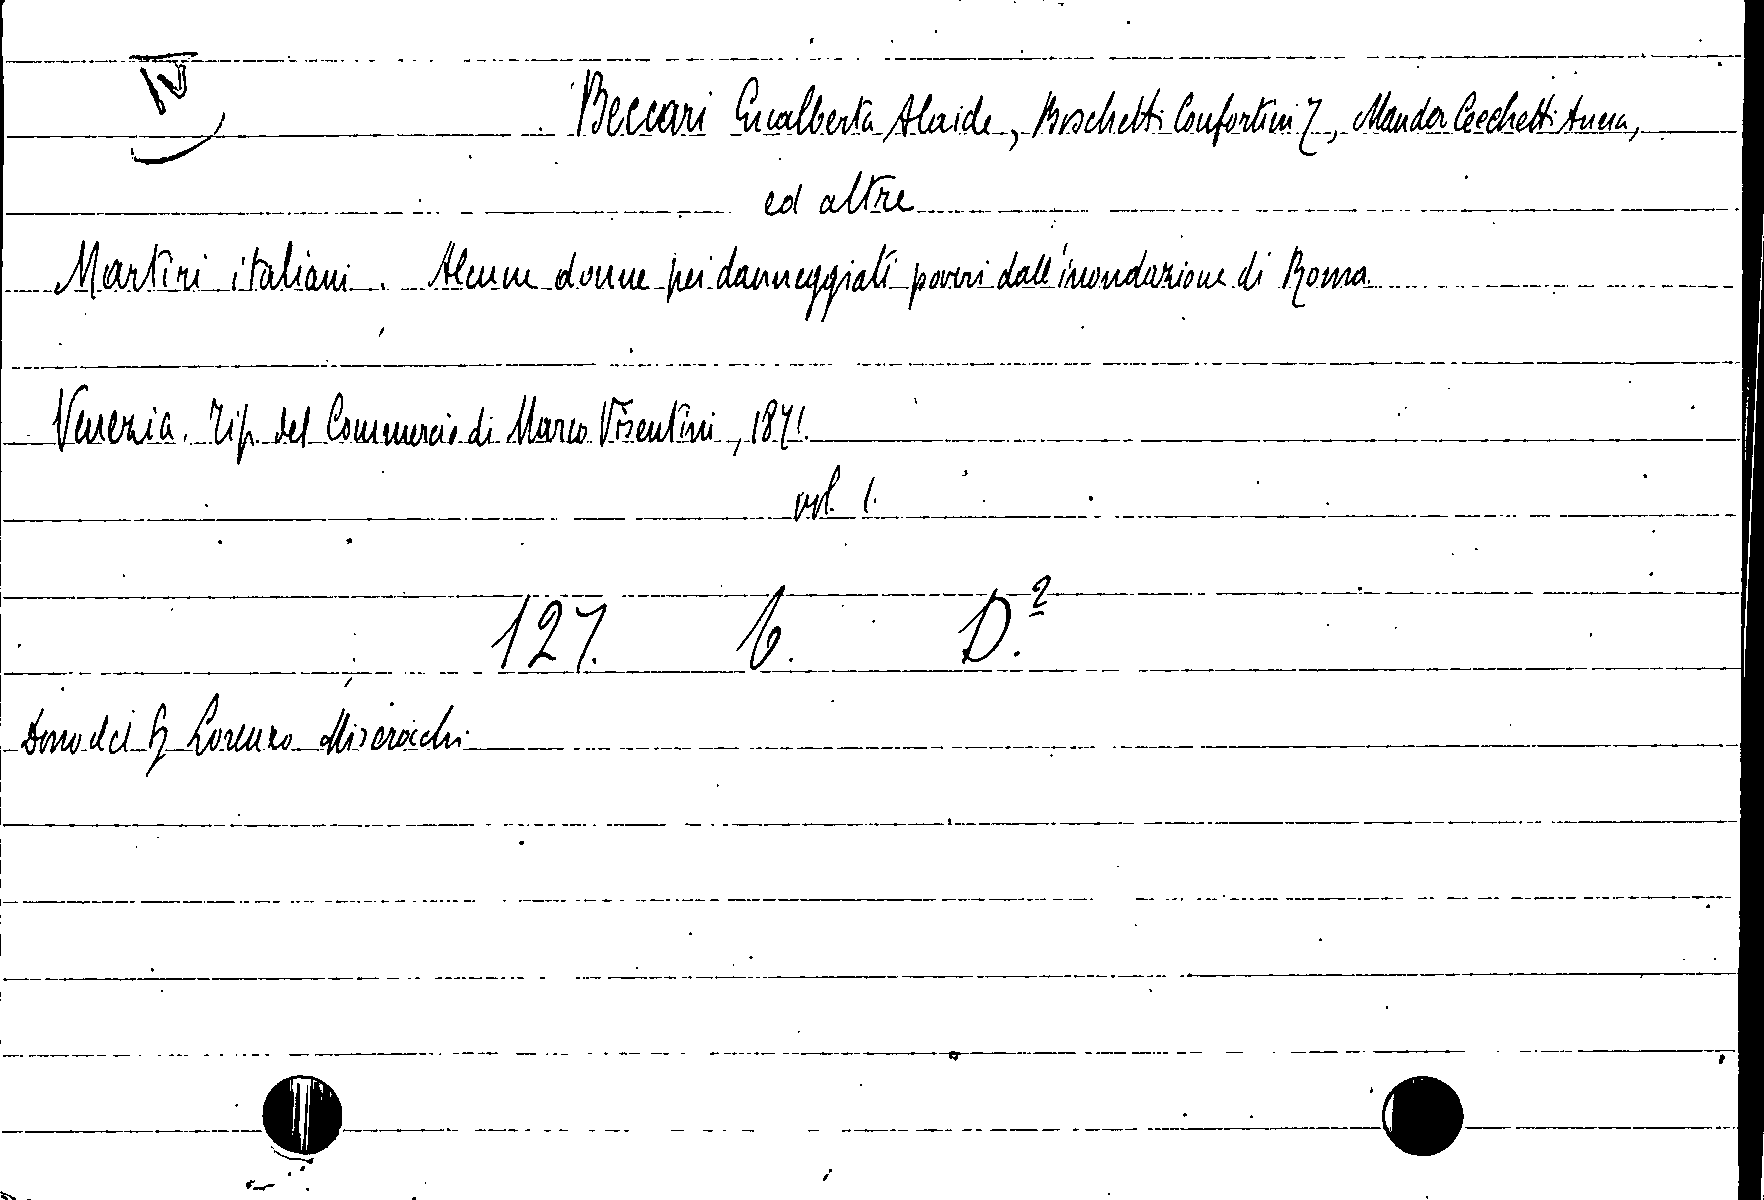 IV
Beccari Gualberta Alaide, Boschetti Confortini Z, Mander Cecchetti Anna,
ed altre
Martiri italiani. Alcune donne pei danneggiati poveri dall'inondazione di Roma.
Venezia. Tip. del Commercio di Marco Visentini, 1871.
vol. 1.
127. b. D.2
Dono del Sg Lorenzo Miserocchi